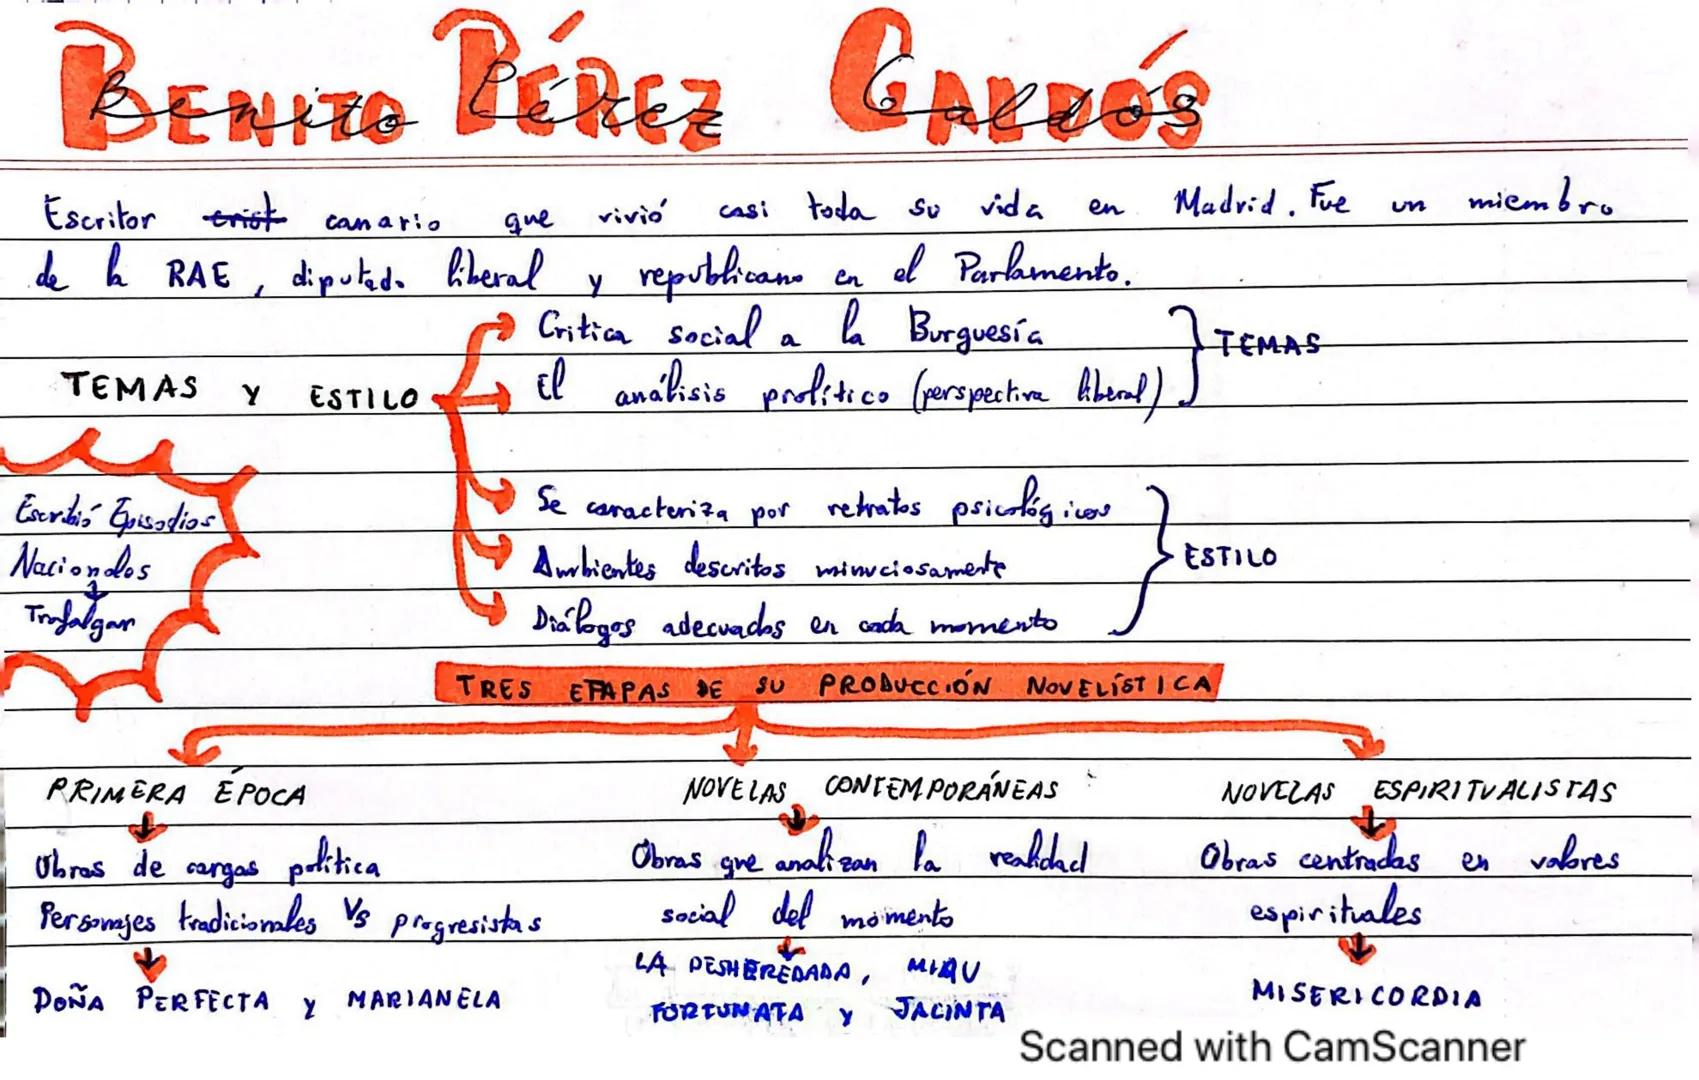 BENITO PÉREZ GALDÓS
Benito Pérez Galdós
Escritor canario que vivió casi toda su vida en Madrid. Fue un miembro
de la RAE, diputado liberal y republicano en el Parlamento.
TEMAS Y ESTILO
Critica social a la Burguesía
El análisis prolítico (perspectiva liberal)
TEMAS
Se caracteriza por retratos psicológicos
Ambientes descritos minuciosamente
Diálogos adecuados en cada momento
ESTILO
Escribió Episodios
Nacionales
Trafalgar
TRES ETAPAS DE SU PRODUCCIÓN NOVELÍSTICA
PRIMERA ÉPOCA
Obras de cargas política
Personajes tradicionales Vs progresistas
DOÑA PERFECTA y MARIANELA
NOVELAS CONTEMPORÁNEAS
Obras que analizan la realidad
social del momento
LA DESHEREDADA, MIAU
FORTUNATA y JACINTA
NOVELAS ESPIRITUALISTAS
Obras centradas en valores
espirituales
MISERICORDIA
Scanned with CamScanner